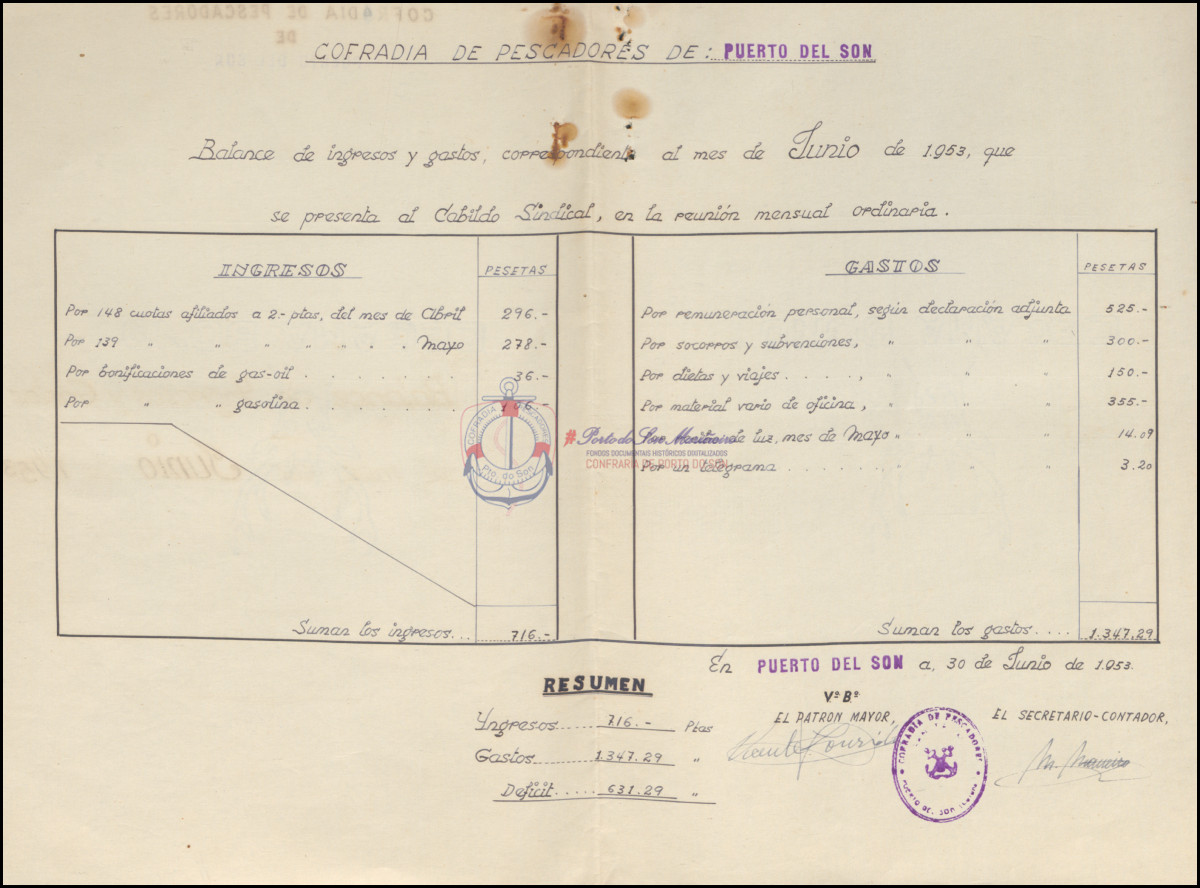 COFRADIA DE PESCADORES DE: PUERTO DEL SON
Balance de ingresos y gastos, correspondiente al mes de Junio de 1.953, que
se presenta al Cabildo Sindical, en la reunión mensual ordinaria.
INGRESOS PESETAS
Por 148 cuotas afiliados a 2.- ptas, del mes de Abril 296.-
Por 139 " " " " " " " Mayo 278.-
Por bonificaciones de gas-oil . . . . . . . . 36.-
Por " " gasolina . . . . . . . . 106.-
Suman los ingresos... 716.-
GASTOS PESETAS
Por remuneración personal, según declaración adjunta 525.-
Por socorros y subvenciones, " " " 300.-
Por dietas y viajes . . . . , " " " 150.-
Por material vario de oficina, " " " 355.-
de luz, mes de Mayo " " " 14.09
Por un telegrama . . . . . . . . " " 3.20
Suman los gastos.... 1.347.29
COFRADIA PESCADORES
Pto. do Son
#Porto do Son Mariñeiro
FONDOS DOCUMENTAIS HISTÓRICOS DIXITALIZADOS
CONFRARÍA DE PORTO DO SON
En PUERTO DEL SON a, 30 de Junio de 1.953.
RESUMEN
Yngresos..... 716.- Ptas
Gastos..... 1.347.29 "
Deficit..... 631.29 "
Vº Bº
EL PATRON MAYOR,
EL SECRETARIO-CONTADOR,
COFRADÍA DE PESCADORES
PUERTO DEL SON